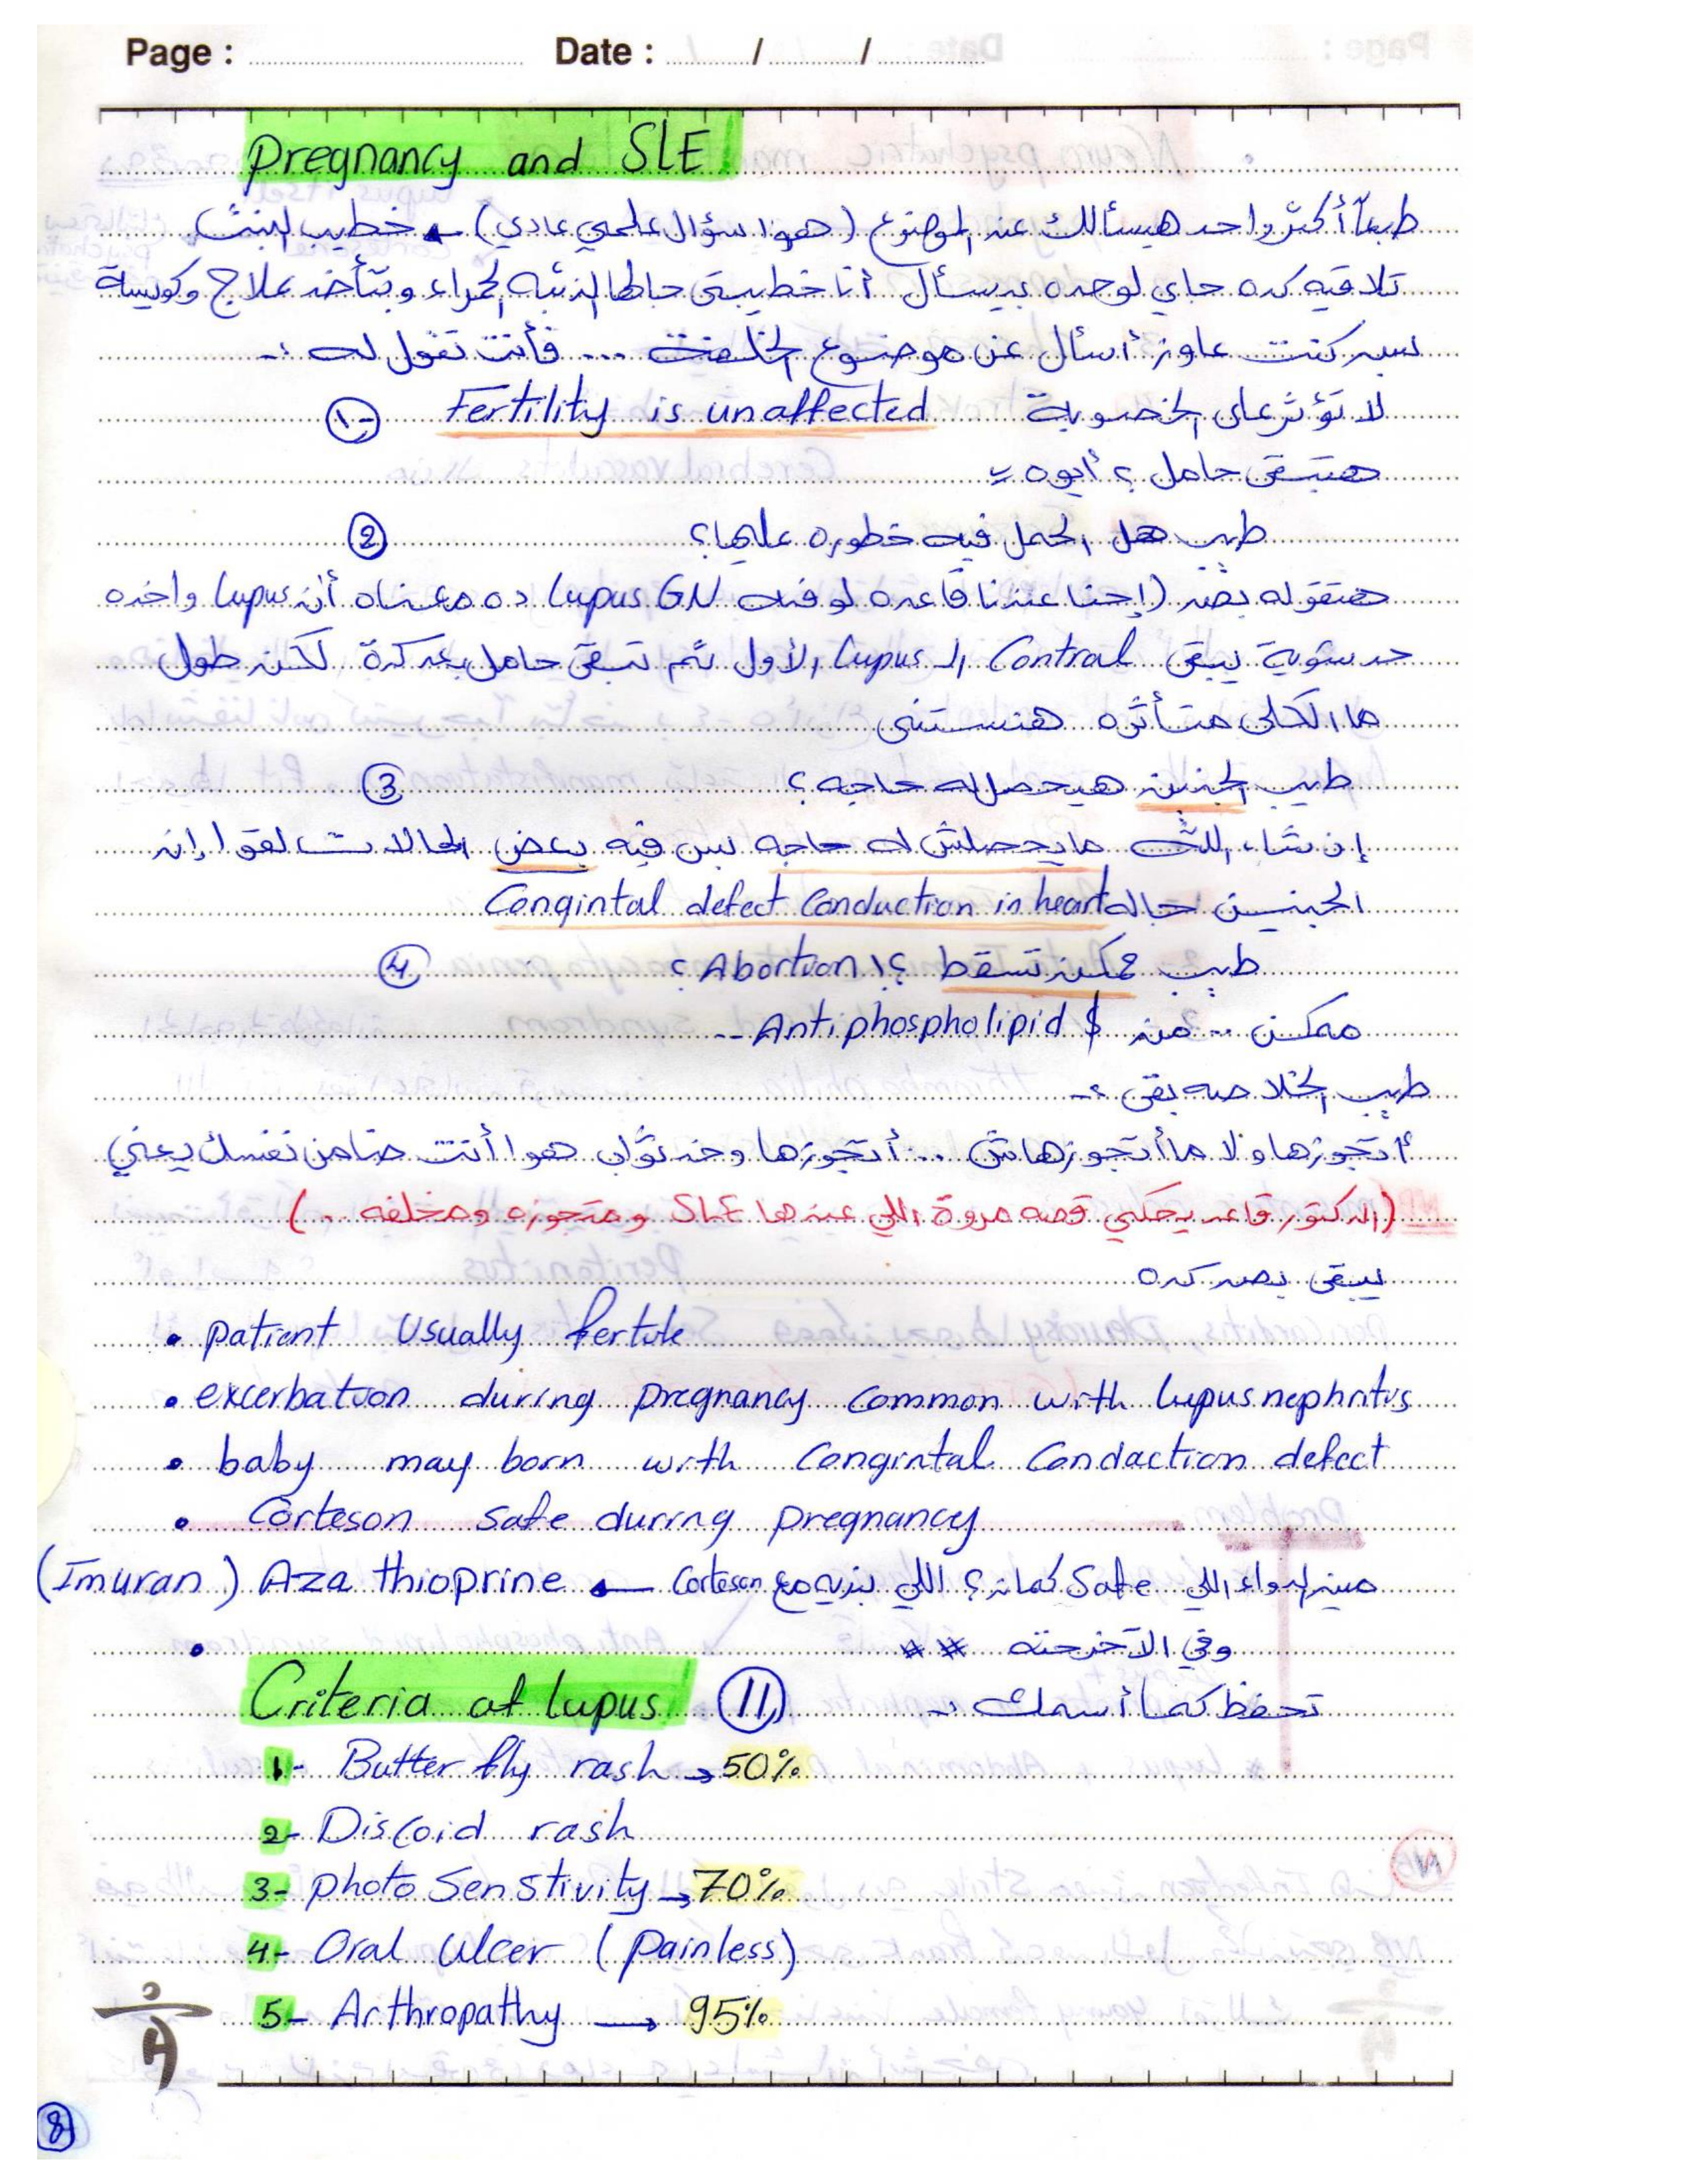 Page : Date : / /
Pregnancy and SLE
طبعاً أكتر واحد هيسألك عن الموضوع (هوا سؤال علمي عادي) ← خطيب البنت
تلاقيه كده جاي لوحده بيسأل أنا خطيبتي جالها الذئبه الحمراء وبتأخد علاج وكويسة
بس كنت عاوز أسأل عن موضوع الخلفة ... فأنت تقول له :-
1- Fertility is unaffected لا تؤثر على الخصوبة
هتبقى حامل ؟ أيوه
طيب هل الحمل فيه خطوره عليها؟ 2
هتقوله بص (إحنا عندنا قاعده لو فيه Lupus GN ده معناه أن Lupus واخده
حد شوية يبقى Control الـ Lupus الأول ثم تبقى حامل بعد كدة لكن طول
ما الكلى متأثره هنستنى
طيب الجنين هيحصله حاجه ؟ 3
إن شاء الله مايحصلش له حاجه بس فيه بعض الحالات لقوا إن
الجنين جاله Congintal defect Conduction in heart
طيب ممكن تسقط ؟! Abortion ؟ 4
ممكن .. من Antiphospholipid $ --
طيب الخلاصه بقى :-
أتجوزها ولا ما أتجوزهاش ... أتجوزها وخد ثواب هوا أنت ضامن نفسك يعني
(الدكتور قاعد يحكي قصه مروة اللي عندها SLE ومتجوزه ومخلفه ..)
يبقى بص كده
• patient Usually fertile
• excerbation during pregnancy common with lupus nephritis
• baby may born with Congintal Condaction defect
• Corteson safe during pregnancy
مين الدواء اللي Safe كمان ؟ اللي بنديه مع Corteson ← Aza thioprine (Imuran)
• وفي الآخر حته **
Criteria of lupus 11 تحفظ كما أسمك :-
1- Butter fly rash → 50%
2- Discoid rash
3- photo Senstivity → 70%
4- Oral Ulcer (Painless)
5- Arthropathy → 95%
8